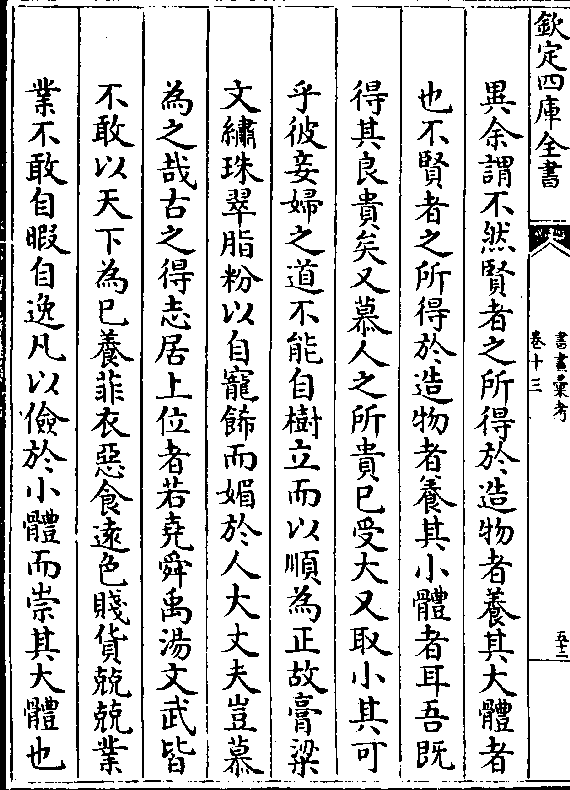 欽定四庫全書
書畫彙考
卷十三
五十二
異余謂不然賢者之所得於造物者養其大體者
也不賢者之所得於造物者養其小體者耳吾既
得其良貴矣又慕人之所貴已受大又取小其可
乎彼妾婦之道不能自樹立而以順為正故膏粱
文繡珠翠脂粉以自寵飾而媚於人大丈夫豈慕
為之哉古之得志居上位者若堯舜禹湯文武皆
不敢以天下為已養菲衣惡食遠色賤貨兢兢業
業不敢自暇自逸凡以儉於小體而崇其大體也